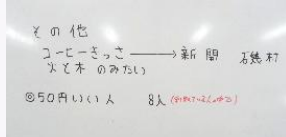 その他
コーヒーきっさ → 新聞 石鏡町
火と木 のみたい
◎50円いい人 8人